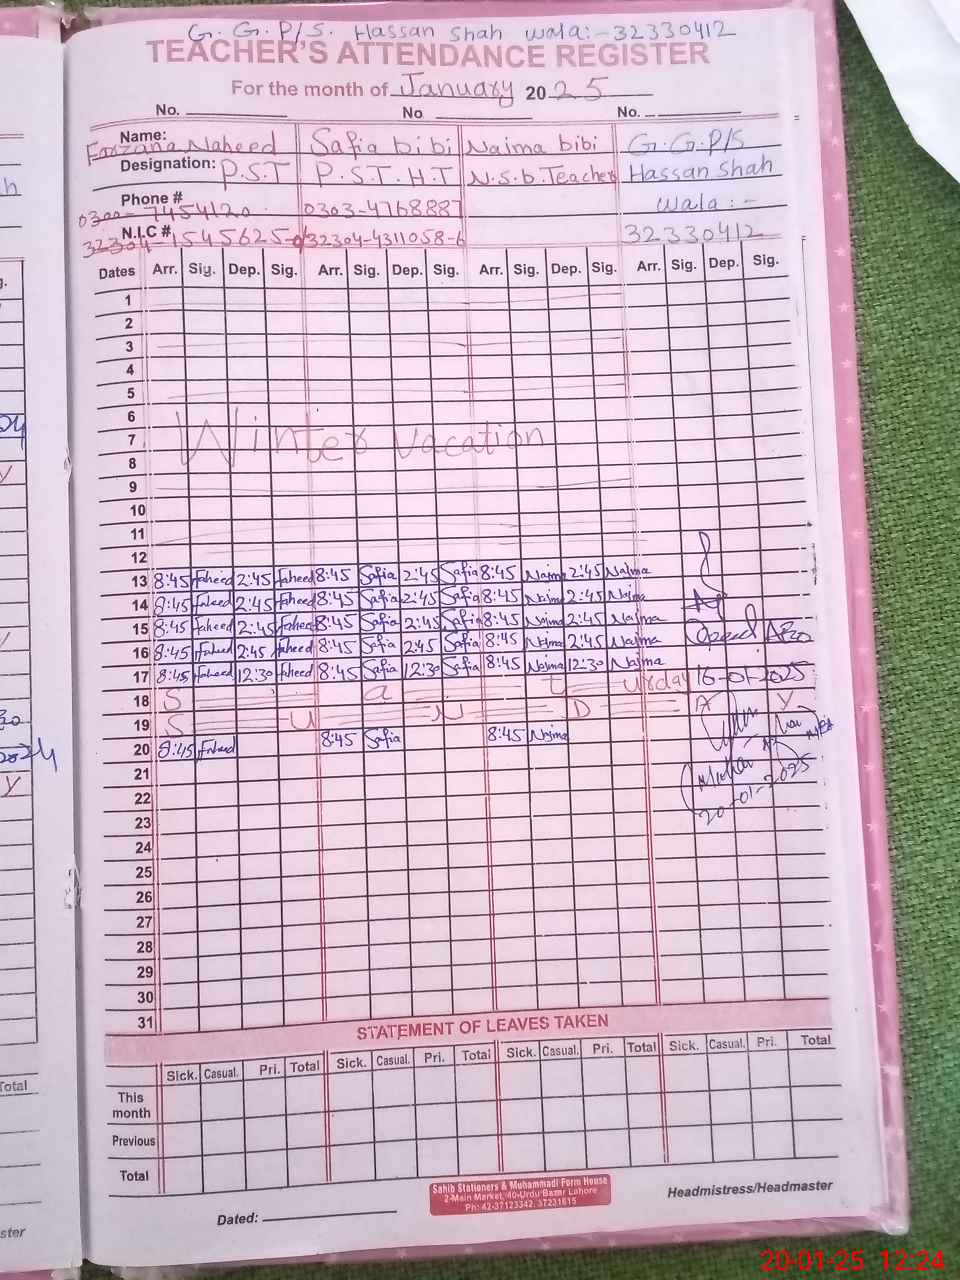 G.G.P/S. Hassan Shah wala:-32330412
TEACHER'S ATTENDANCE REGISTER
For the month of January 2025
No. No No.
Name: Farzana Naheed Safia bibi Naima bibi G.G.P/S
Designation: P.S.T P.S.T.H.T N.S.b.Teacher Hassan Shah
Phone # 0300-7454120 0303-4768887 wala:-
N.I.C # 32304-1545625- 32304-4311058-6 32330412
Dates Arr. Sig. Dep. Sig. Arr. Sig. Dep. Sig. Arr. Sig. Dep. Sig. Arr. Sig. Dep. Sig.
1
2
3
4
5
6
7 Winter vacation
8
9
10
11
12
13 8:45 Naheed 2:45 Naheed 8:45 Safia 2:45 Safia 8:45 Naima 2:45 Naima
14 8:45 Naheed 2:45 Naheed 8:45 Safia 2:45 Safia 8:45 Naima 2:45 Naima
15 8:45 Naheed 2:45 Naheed 8:45 Safia 2:45 Safia 8:45 Naima 2:45 Naima
16 8:45 Naheed 2:45 Naheed 8:45 Safia 2:45 Safia 8:45 Naima 2:45 Naima
17 8:45 Naheed 12:30 Naheed 8:45 Safia 12:30 Safia 8:45 Naima 12:30 Naima 16-01-2025
18 S a t urday
19 S U N D A Y
20 8:45 Naheed 8:45 Safia 8:45 Naima
21
22 20-01-2025
23
24
25
26
27
28
29
30
31
STATEMENT OF LEAVES TAKEN
Sick. Casual. Pri. Total Sick. Casual. Pri. Total Sick. Casual. Pri. Total Sick. Casual. Pri. Total
This month
Previous
Total
Sahib Stationers & Muhammadi Form House
2-Main Market, 40-Urdu Bazar Lahore
Ph: 42-37123342, 37231615
Dated: Headmistress/Headmaster
20-01-25 12:24